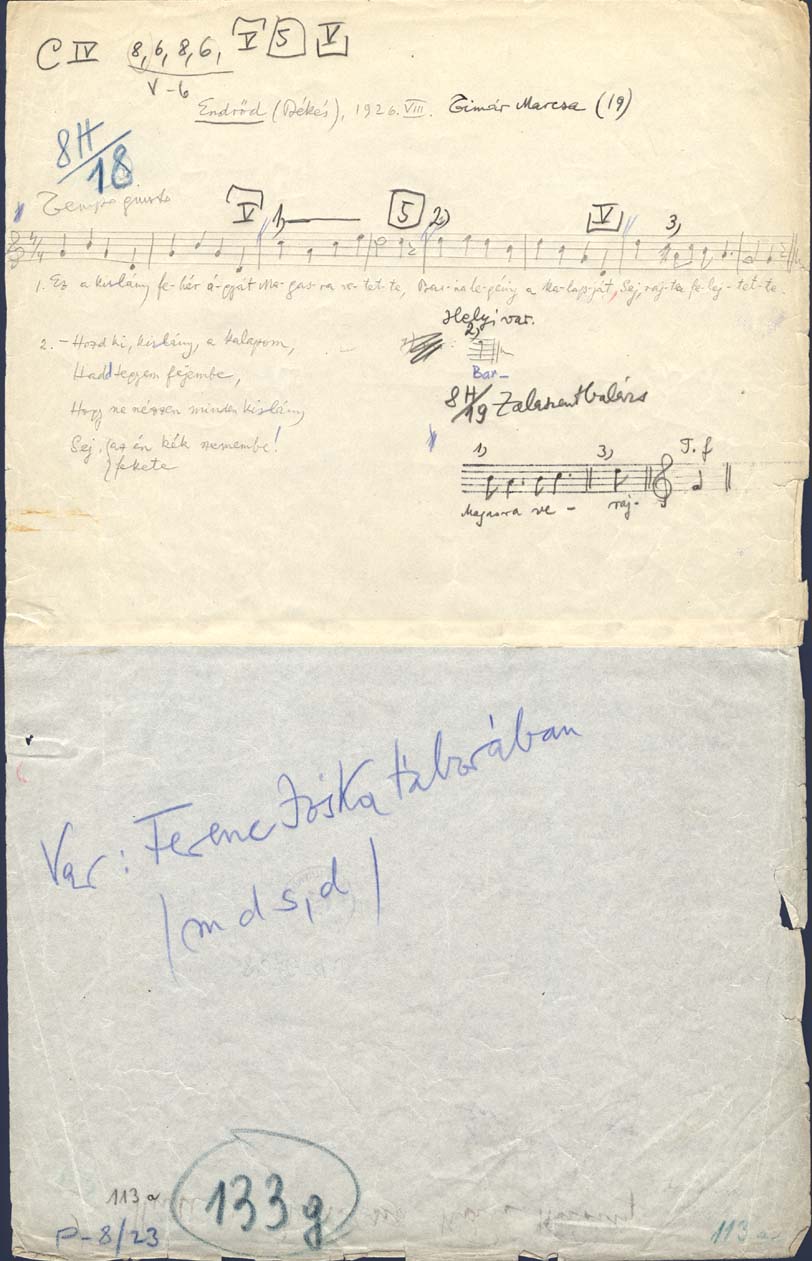 C IV 8, 6, 8, 6, V 5 V
V-6
Endrőd (Békés), 1926. VIII. Timár Marcsa (19)
8H/18
Tempo giusto
V 1) 5 2) V 3)
1. Ez a kislány fe-hér á-gyát Ma-gas-ra ve-tet-te, Bar-na le-gény a ka-lap-ját, Sej, raj-ta fe-lej-tet-te.
Helyi var.
2)
Bar-
2. - Hozd ki, kislány, a kalapom,
Hadd tegyem fejembe,
Hogy ne nézzen minden kislány
Sej, az én kék szemembe!
fekete
8H/19 Zalaszentbalázs
1) 3) T. f
Magasra ve - raj-
Var: Ferenc Jóska táborában
/m d s, d/
113 a
133 g
P-8/23
113 a